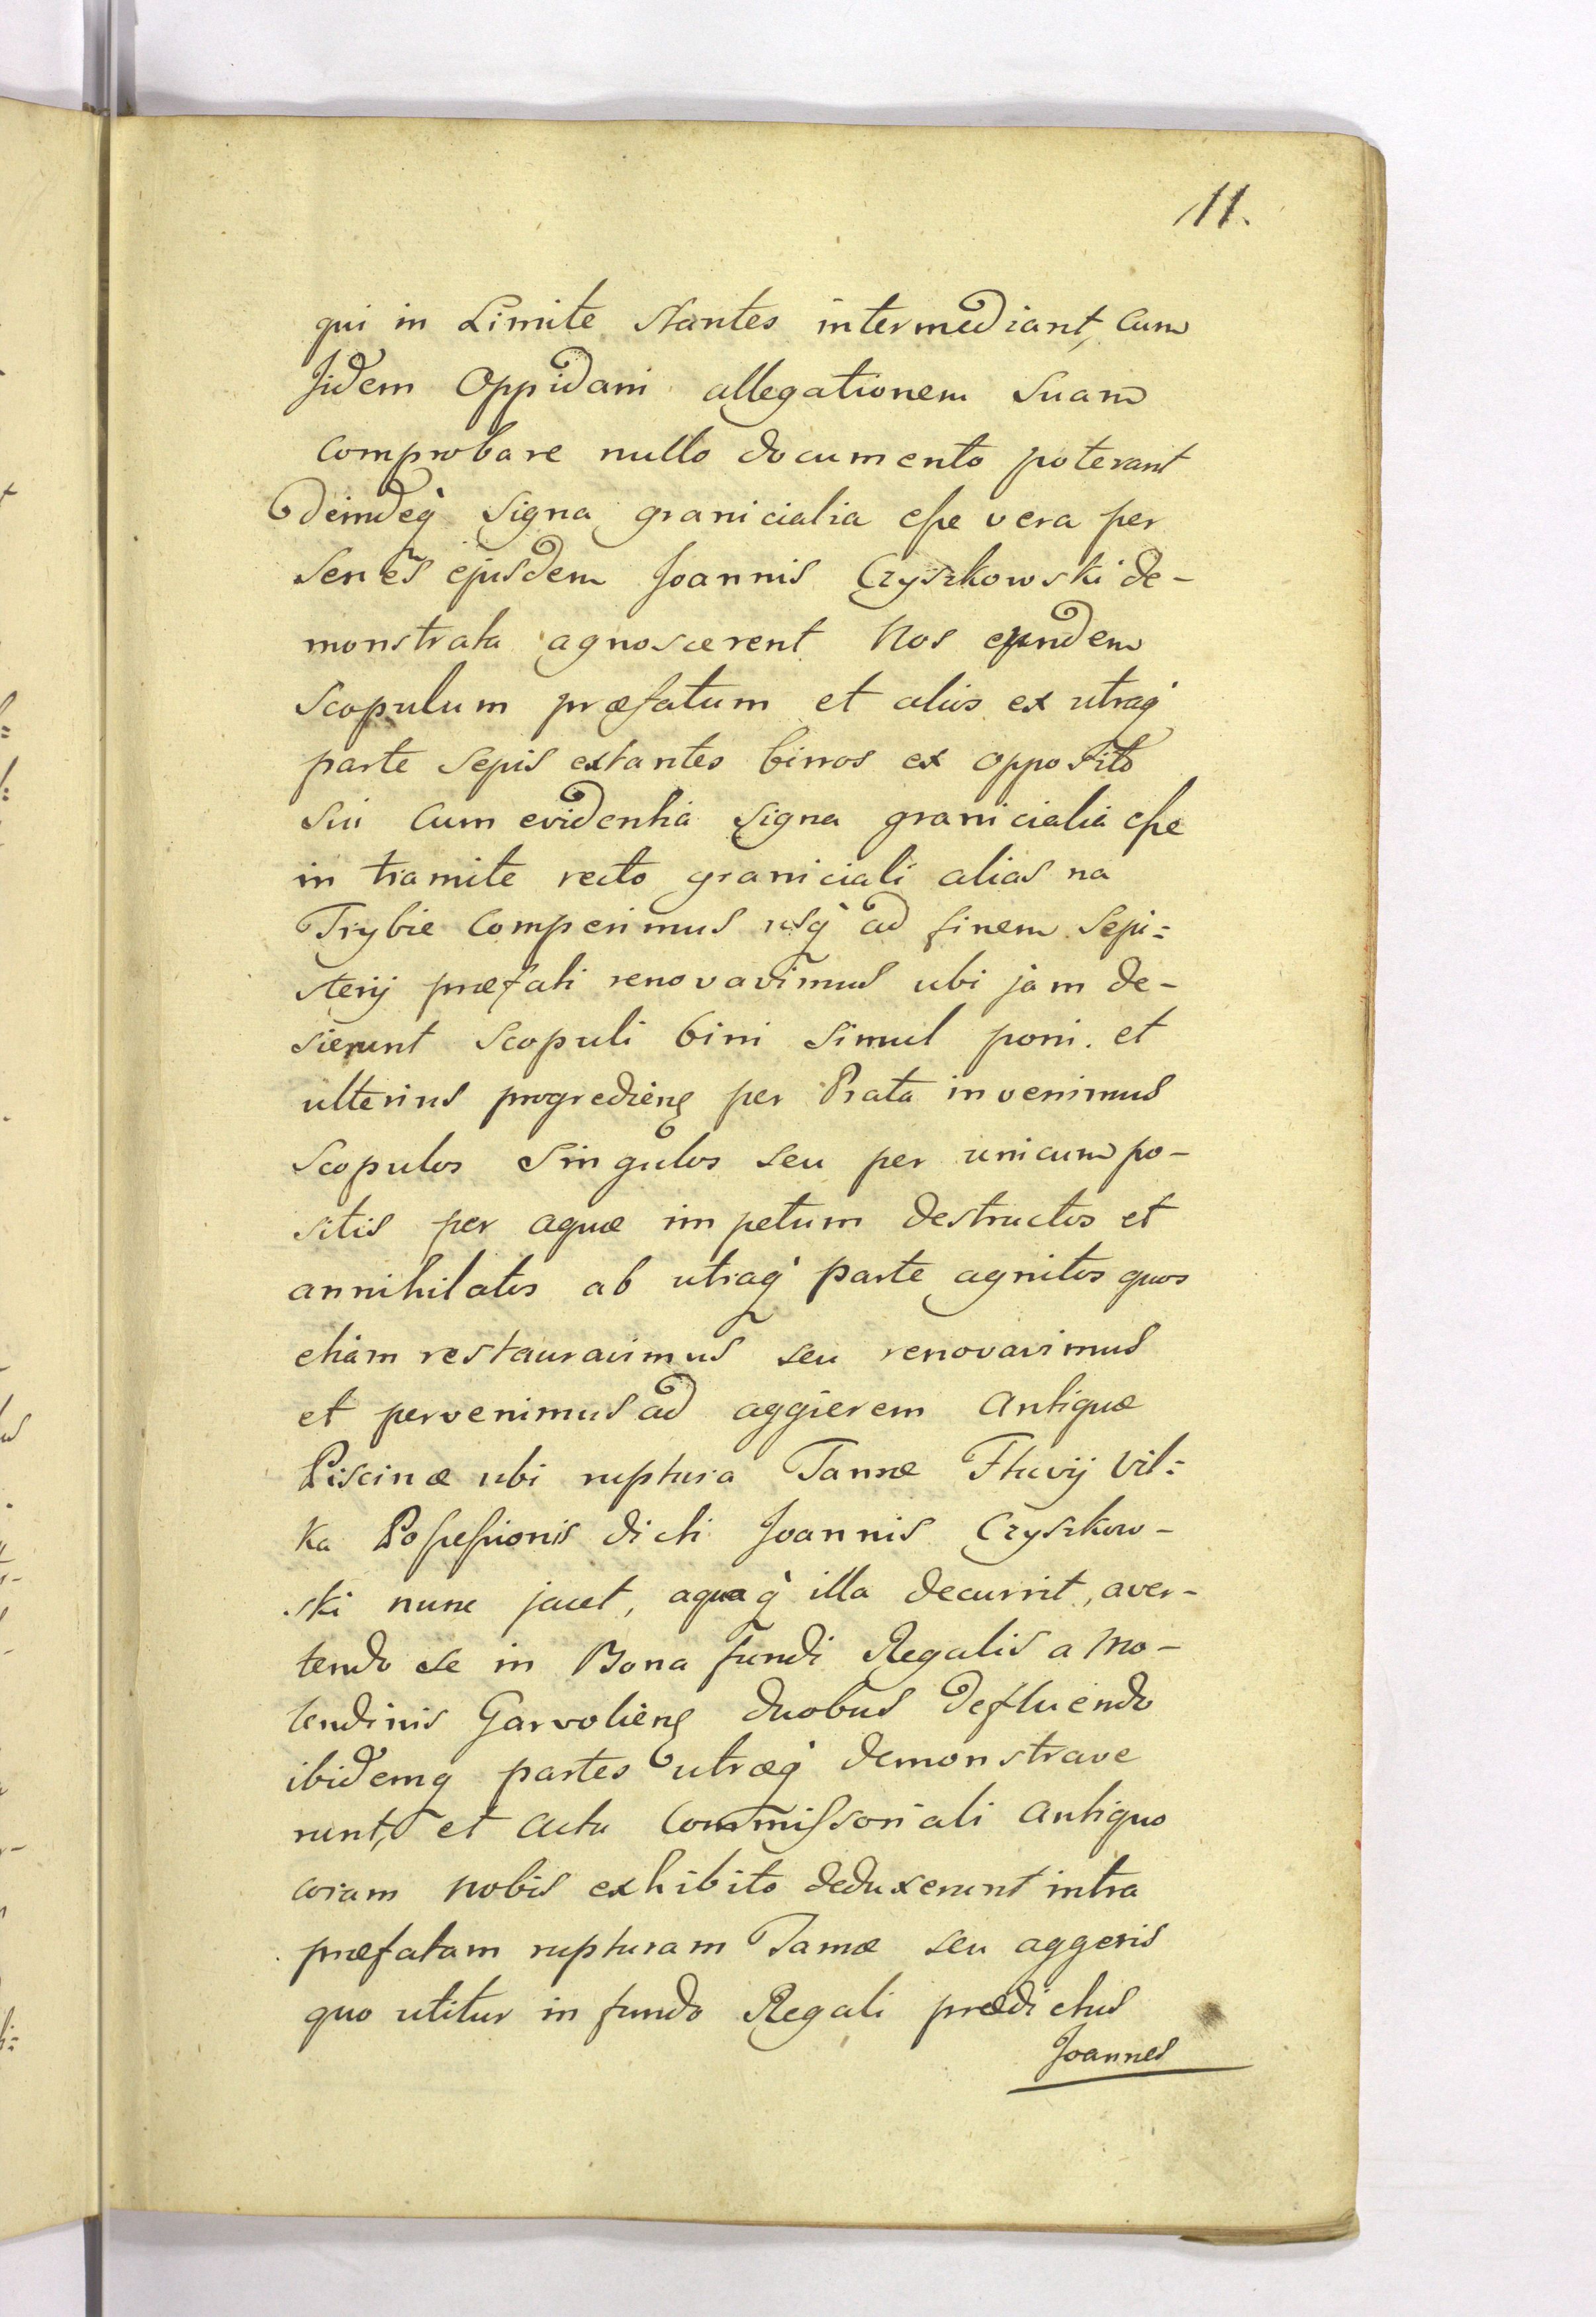 11.
qui in Limite stantes intermediant, cum
Jidem Oppidani allegationem suam
comprobare nullo documento poterant
deindeq̀ signa granicialia eſse vera per
senes ejusdem Joannis Czyszkowski de-
monstrata agnoscerent Nos eundem
scopulum præfatum et alius ex utraq̀
parte sepis extantes binos ex opposito
sui cum evidentia signa granicialia eſse
in tramite recto graniciali alias na
Trybie comperimus usq̀ ad finem sepi=
sterij præfati renovavimus ubi jam de-
sierunt scopuli bini simul poni. et
ulterius progredieng per Prata invenimus
scopulos singulos seu per unicum po-
sitis per aquæ impetum destructos et
annihilatos ab utraq̀ parte agnitos quos
etiam restauravimus seu renovavimus
et pervenimus ad aggierem antiquæ
Piscinæ ubi ruptura Tamæ Fluvij Vil=
ka Poſseſsionis dicti Joannis Czyszkow-
ski nunc jacet, aquaq̀ illa decurrit, aver-
tendo se in Bona fundi Regalis a Mo-
lendinis Garvolieng duobus defluendo
ibidemq partes utræq̀ demonstrave
runt, et actu Commiſsoriali antiquo
coram nobis exhibito deduxerunt intra
præfatam rupturam Tamæ seu aggeris
quo utitur in fundo Regali prædictus
Joannes